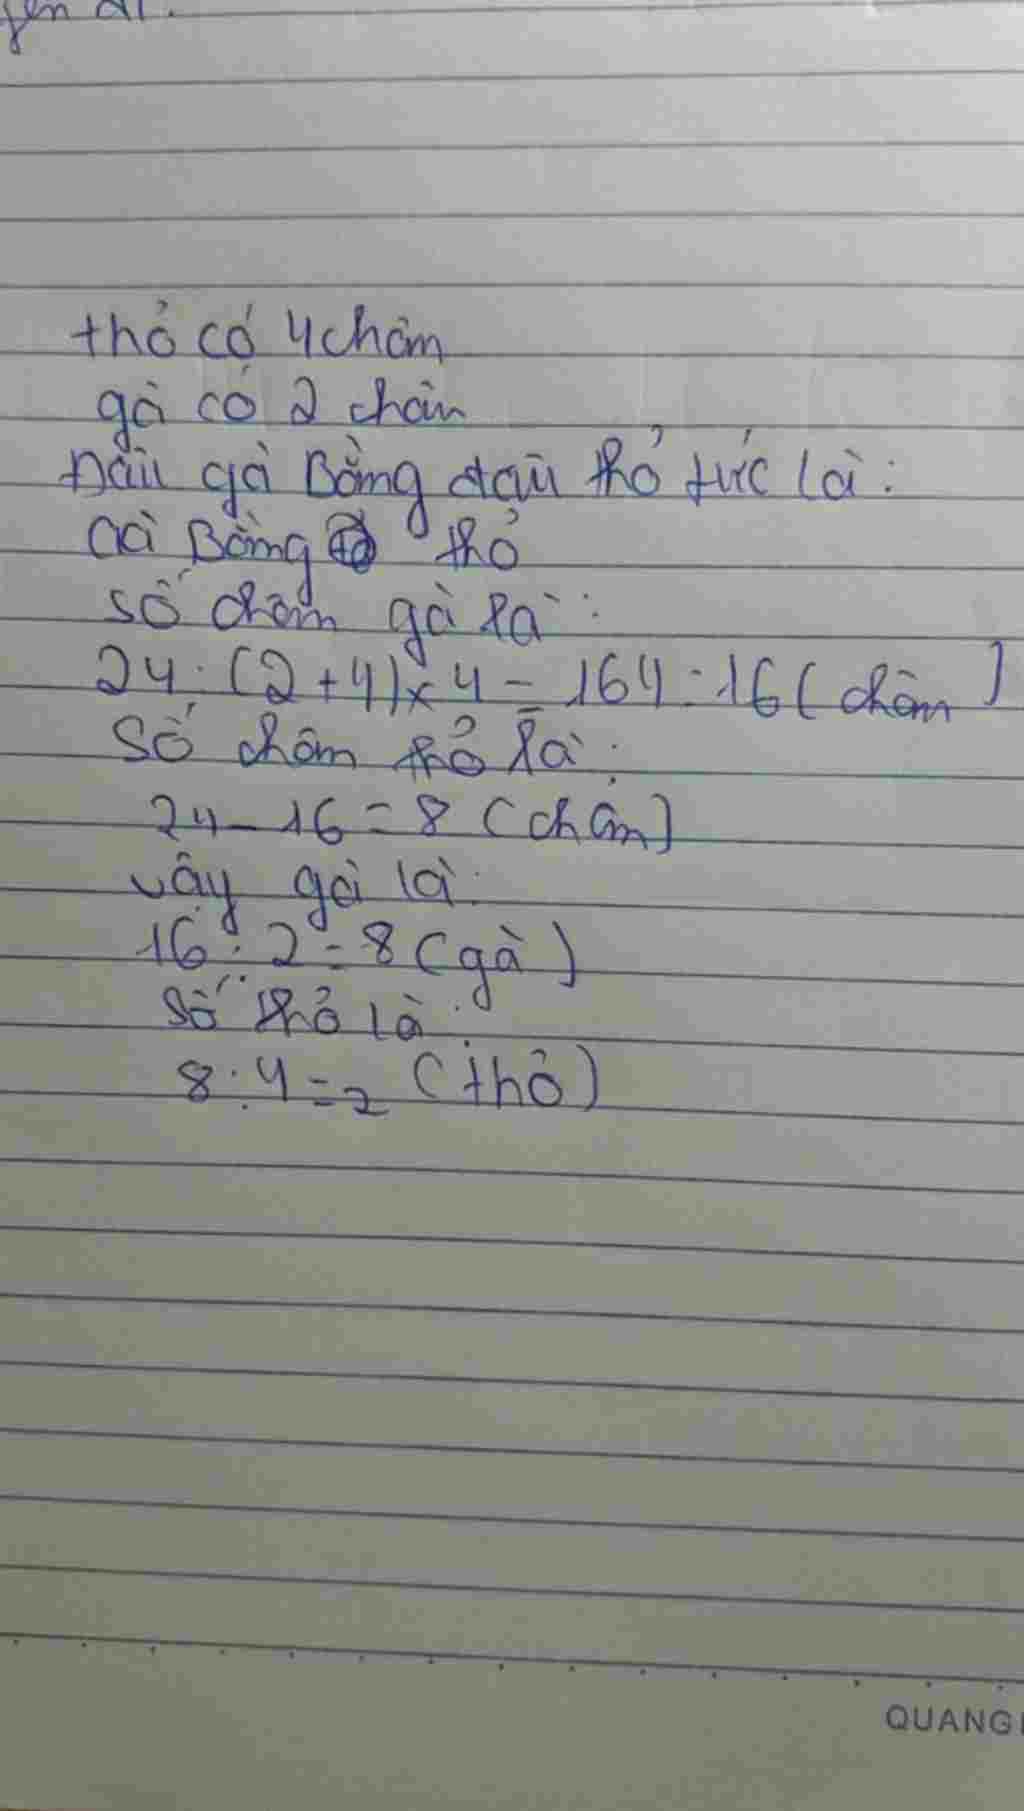 thỏ có 4 chân
gà có 2 chân
Đầu gà Bằng đầu thỏ tức là:
Gà Bằng thỏ
số chân gà là:
24:(2+4)×4=164=16(chân)
Số chân thỏ là:
24-16=8 (chân)
vậy gà là:
16:2=8 (gà)
số thỏ là:
8:4=2 (thỏ)
QUANG